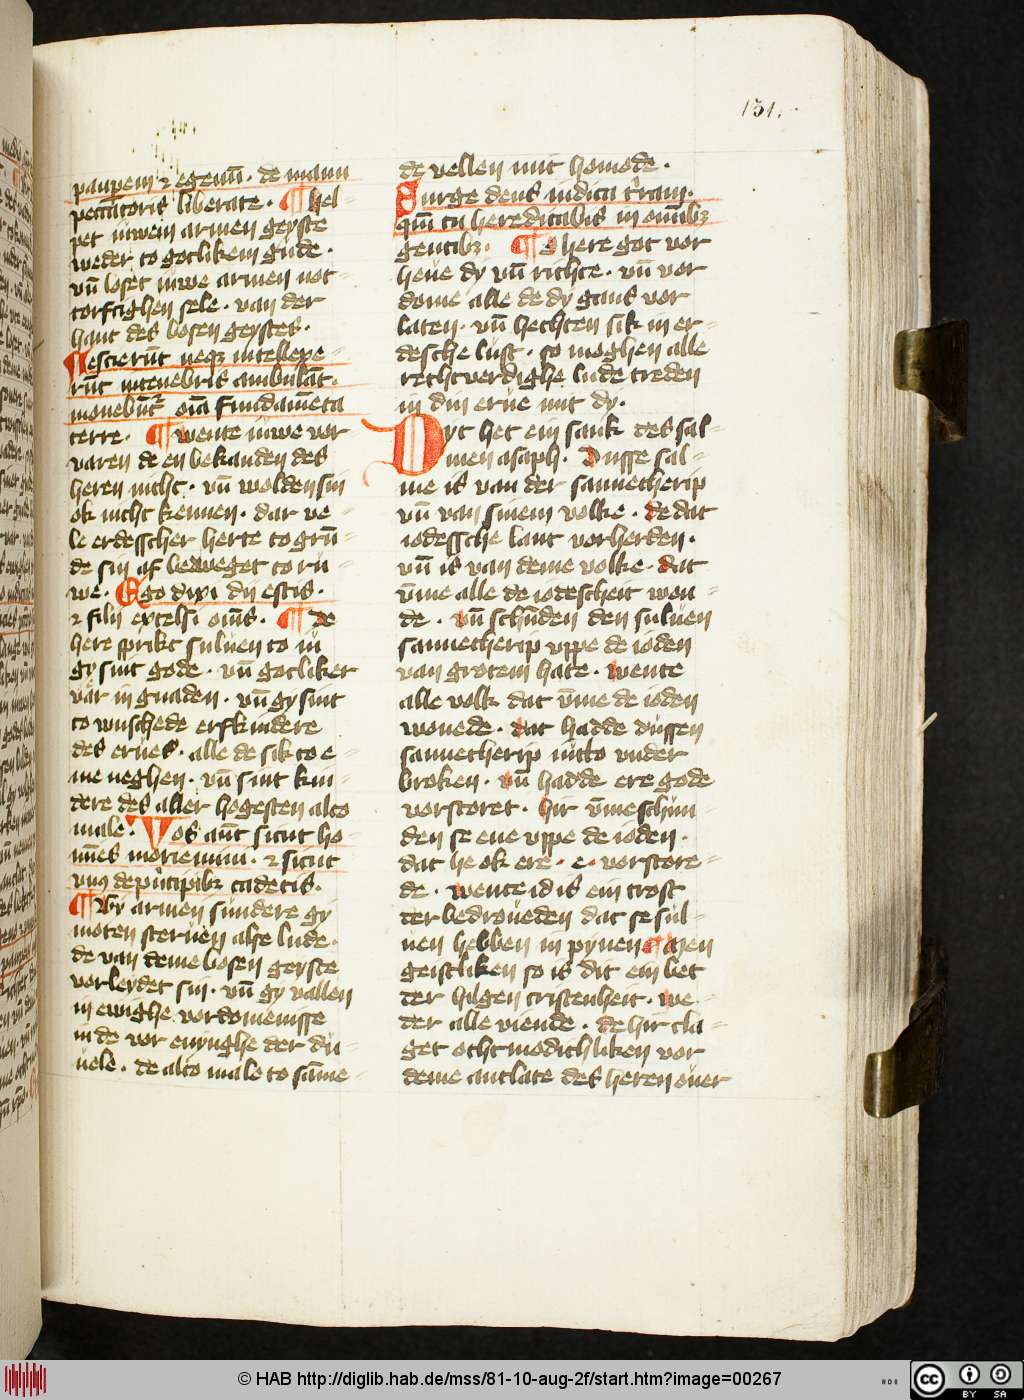 151.
pauperem ⁊ egenū · de manu
peccatoris liberate · ¶ hel-
pet iuwem armen geyste
weder to gotlikem gude ·
vn̄ loset iuwe armen not-
torftighen sele · van der
hant des bosen geystes ·
Nescierūt neqꝫ intellexe-
rūt in tenebris ambulāt ·
monebūt oīa fundamēta
terre · ¶ wente iuwe vor-
varen de en bekanden des
heren nicht · vn̄ wolden sin
ok nicht kennen · dar ve-
le erdesscher herte to grū-
de sin af beweget to ru-
we · Ego dixi dii estis ·
⁊ filii excelsi om̄s · ¶ de
here sprikt suluen to iu
gy sint gode · vn̄ gotliker
var in gnaden · vn̄ gy sint
to wuschede erfkindere
des erues · alle de sik to e-
me neghen · vn̄ sint kin-
dere des aller hogesten alto
male · Vos aūt sicut ho-
mīes moriemini · ⁊ sicut
vnꝰ de pⁱncipibꝫ cadetis ·
¶ Wy armen sundere gy
moten steruen alse lude ·
de van deme bosen geyste
vorleydet sin · vn̄ gy vallen
in ewighe vordomenisse
in de vor enynghe der du-
uele · de alto male to sāme-
de vellen mit homode ·
Surge deus iudica t̄ram ·
qm̄ tu hereditabis in omībꝫ
gentibꝫ · ¶ O here got vor
heue dy vn̄ richte · vn̄ vor
dome alle de dy gans vor
laten · vn̄ hechten sik in er-
desche lust · so moghen alle
rechtverdighe lude treden
in din erue mit dy ·
Dyt het ein sank des sal-
men asaph · Dusse sal-
me is van der sannetherip
vn̄ van sinem volke · de dat
iodessche lant vorherden ·
vn̄ is van deme volke · dat
v̄me alle de iodescheit won-
de · vn̄ schūden den suluen
sannetherip vppe de ioden
van grotem hate · wente
alle volk dat v̄me de ioden
wonede · dat hadde dussen
sannetherip nicto vnder
broken · vn̄ hadde ere gode
vorstoret · hir v̄me schun-
den se ene vppe de ioden ·
dat he ok ere · e · vorstore-
de · wente id is ein trost
ter bedroueden dat se sul-
uen hebben in pynen ¶ Men
geistliken so is dit ein bet
ter hilgen cristenheit · we-
der alle viende · de hir cla-
get othmodichliken vor
deme antlate des heren ouer
© HAB http://diglib.hab.de/mss/81-10-aug-2f/start.htm?image=00267
HDB
CC BY SA